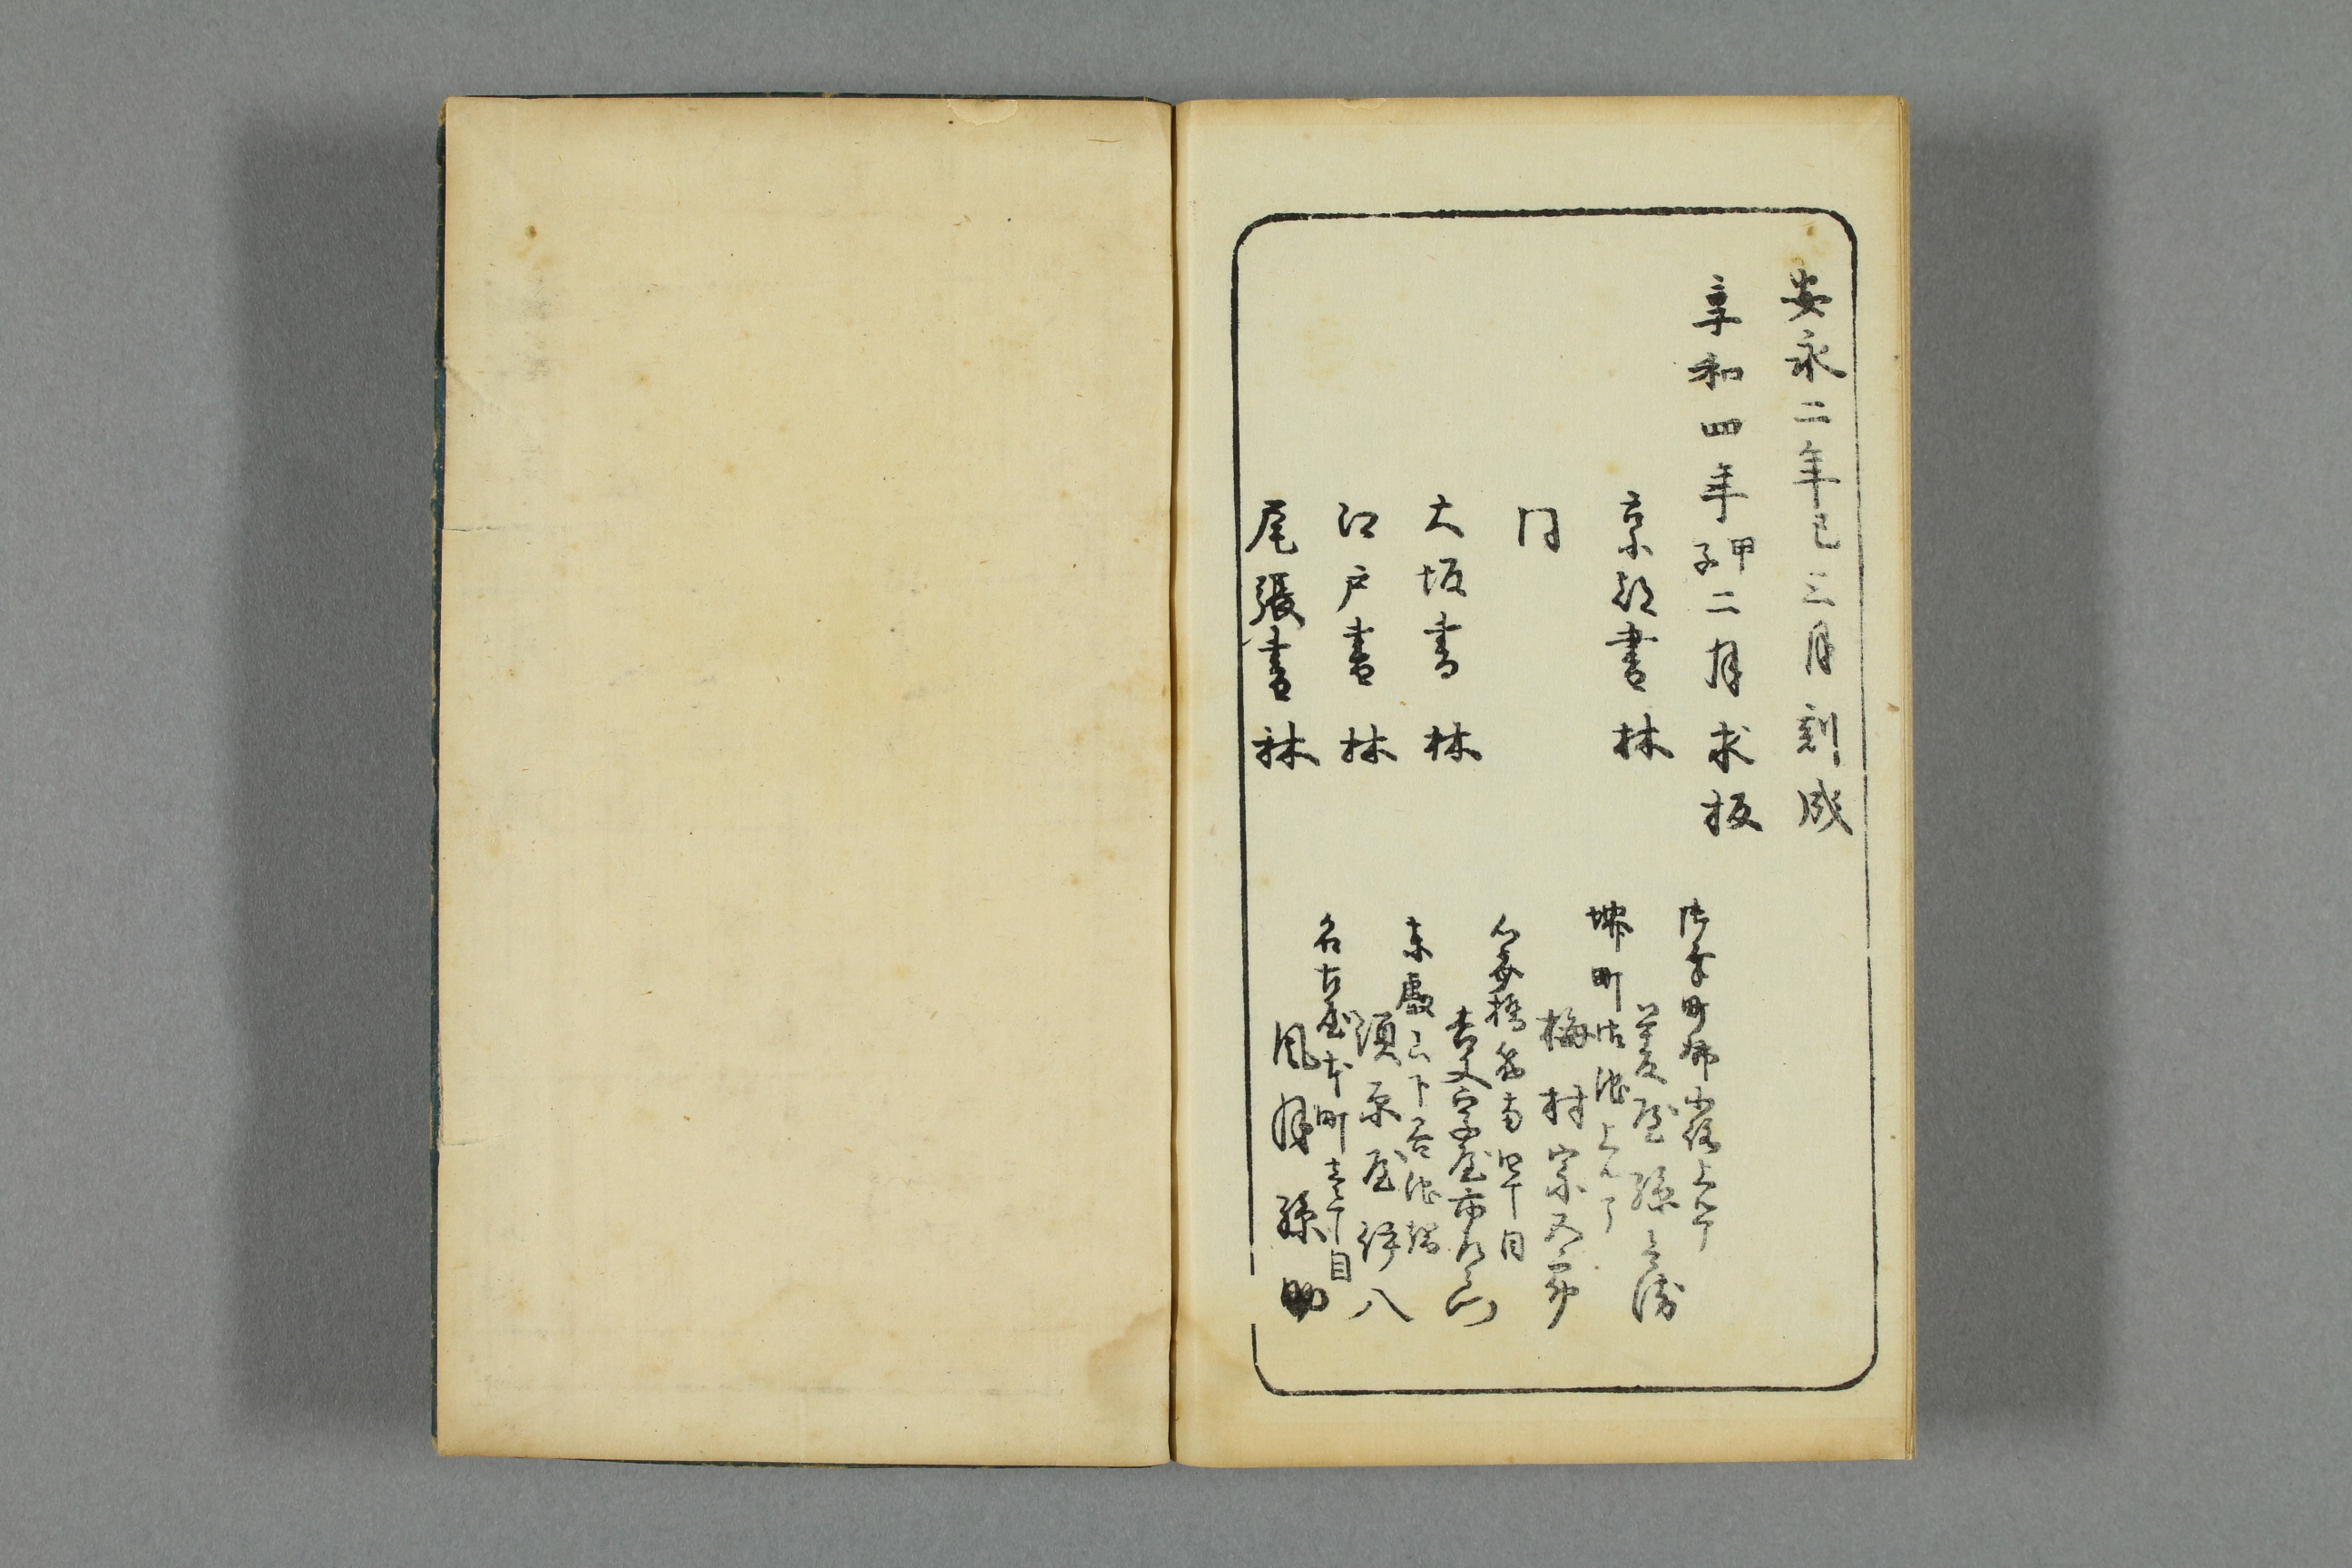 安永二年巳三月刻成
享和四年甲子二月求板
京都書林
御幸町御池上ル丁
菱屋孫兵衛
同
堺町御池上ル丁
梅村宗五郎
大坂書林
心斎橋南四丁目
吉文字屋市左衛門
江戸書林
東叡山下谷池端
須原屋伊八
尾張書林
名古屋本町壱丁目
風月孫助